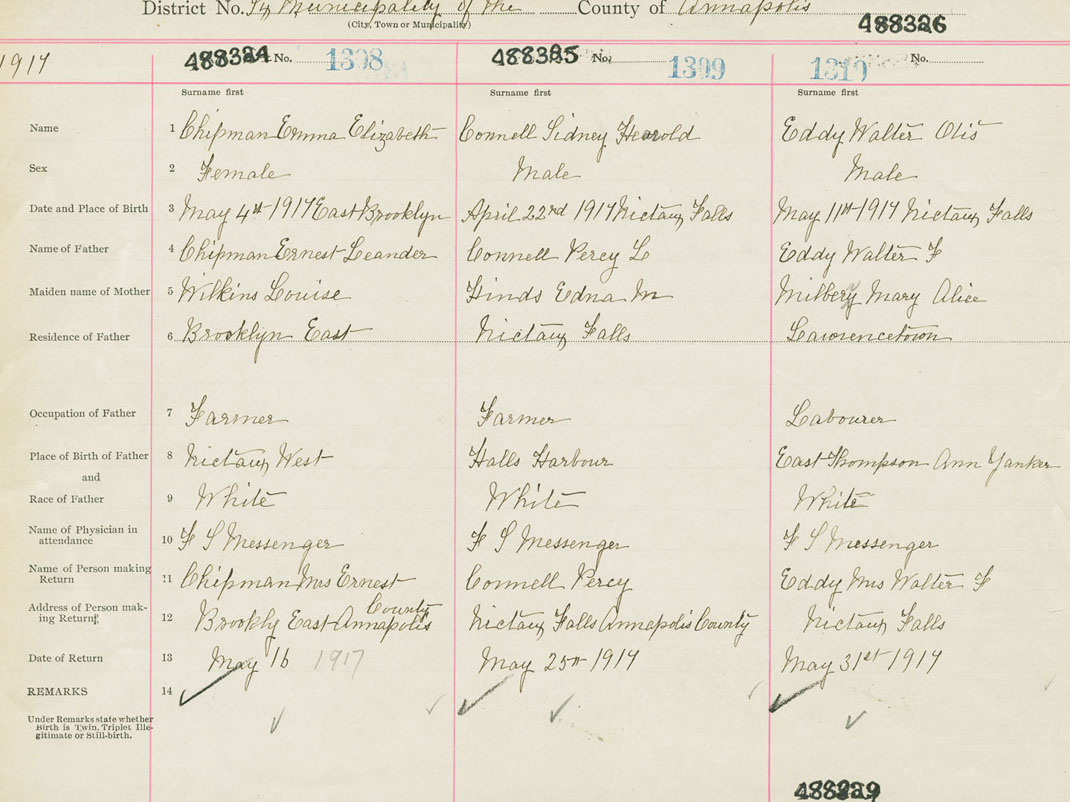 District No. Municipality of the County of Annapolis
(City, Town or Municipality)
488326
1917 488324 No. 1308 488325 No. 1309 1310 No.
Surname first Surname first Surname first
Name 1 Chipman Emma Elizabeth Connell Sidney Harold Eddy Walter Otis
Sex 2 Female Male Male
Date and Place of Birth 3 May 4th 1917 East Brooklyn April 22nd 1917 Nictaux Falls May 11th 1917 Nictaux Falls
Name of Father 4 Chipman Ernest Leander Connell Percy L Eddy Walter F
Maiden name of Mother 5 Wilkins Louise Hinds Edna M Milbery Mary Alice
Residence of Father 6 Brooklyn East Nictaux Falls Lawrencetown
Occupation of Father 7 Farmer Farmer Labourer
Place of Birth of Father 8 Nictaux West Halls Harbour East Thompson Ann Yanker
and
Race of Father 9 White White White
Name of Physician in
attendance 10 F S Messenger F S Messenger F S Messenger
Name of Person making
Return 11 Chipman Mrs Ernest Connell Percy Eddy Mrs Walter F
Address of Person mak-
ing Return 12 Brookly East Annapolis County Nictaux Falls Annapolis County Nictaux Falls
Date of Return 13 May 16 1917 May 25th 1917 May 31st 1917
REMARKS 14
Under Remarks state whether
Birth is Twin, Triplet Ille-
gitimate or Still-birth.